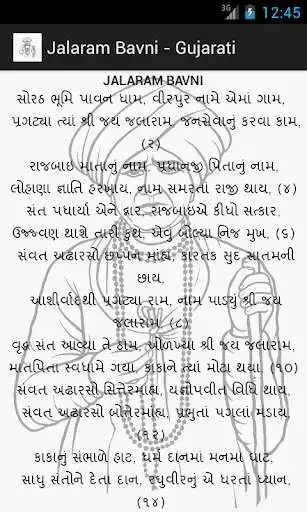 3G 12:45
Jalaram Bavni - Gujarati
JALARAM BAVNI
સોરઠ ભૂમિ પાવન ધામ, વીરપુર નામે એમાં ગામ,
પ્રગટ્યા ત્યાં શ્રી જય જલારામ, જનસેવાનું કરવા કામ,
(૨)
રાજબાઇ માતાનું નામ, પ્રધાનજી પિતાનું નામ,
લોહાણા જ્ઞાતિ હરખાય, નામ સમરતાં રાજી થાય, (૪)
સંત પધાર્યા એને દ્વાર, રાજબાઇએ કીધો સત્કાર,
ઉજ્જવણ થાશે તારી કુંથ, એવું બોલ્યા નિજ મુખ, (૬)
સંવત અઢારસો છપ્પન માંહ્ય, કારતક સુદ સાતમની
છાય,
આશીર્વાદથી પ્રગટ્યા રામ, નામ પાડ્યું શ્રી જય
જલારામ, (૮)
વૃદ્ધ સંત આવ્યા તે ઠામ, ઓળખ્યા શ્રી જય જલારામ,
માતપિતા સ્વધામે ગયા, કાકાને ત્યાં મોટા થયા, (૧૦)
સંવત અઢારસો સિત્તેરમાંહ્ય, યજ્ઞોપવીત વિધિ થાય,
સંવત અઢારસો બોત્તેરમાંહ્ય, પ્રભુતાં પગલાં મંડાય,
(૧૨)
કાકાનું સંભાળે હાટ, ધર્મ દાનમાં મનમાં ઘાટ,
સાધુ સંતોને દેતા દાન, રઘુવીરનું એ ધરતા ધ્યાન,
(૧૪)